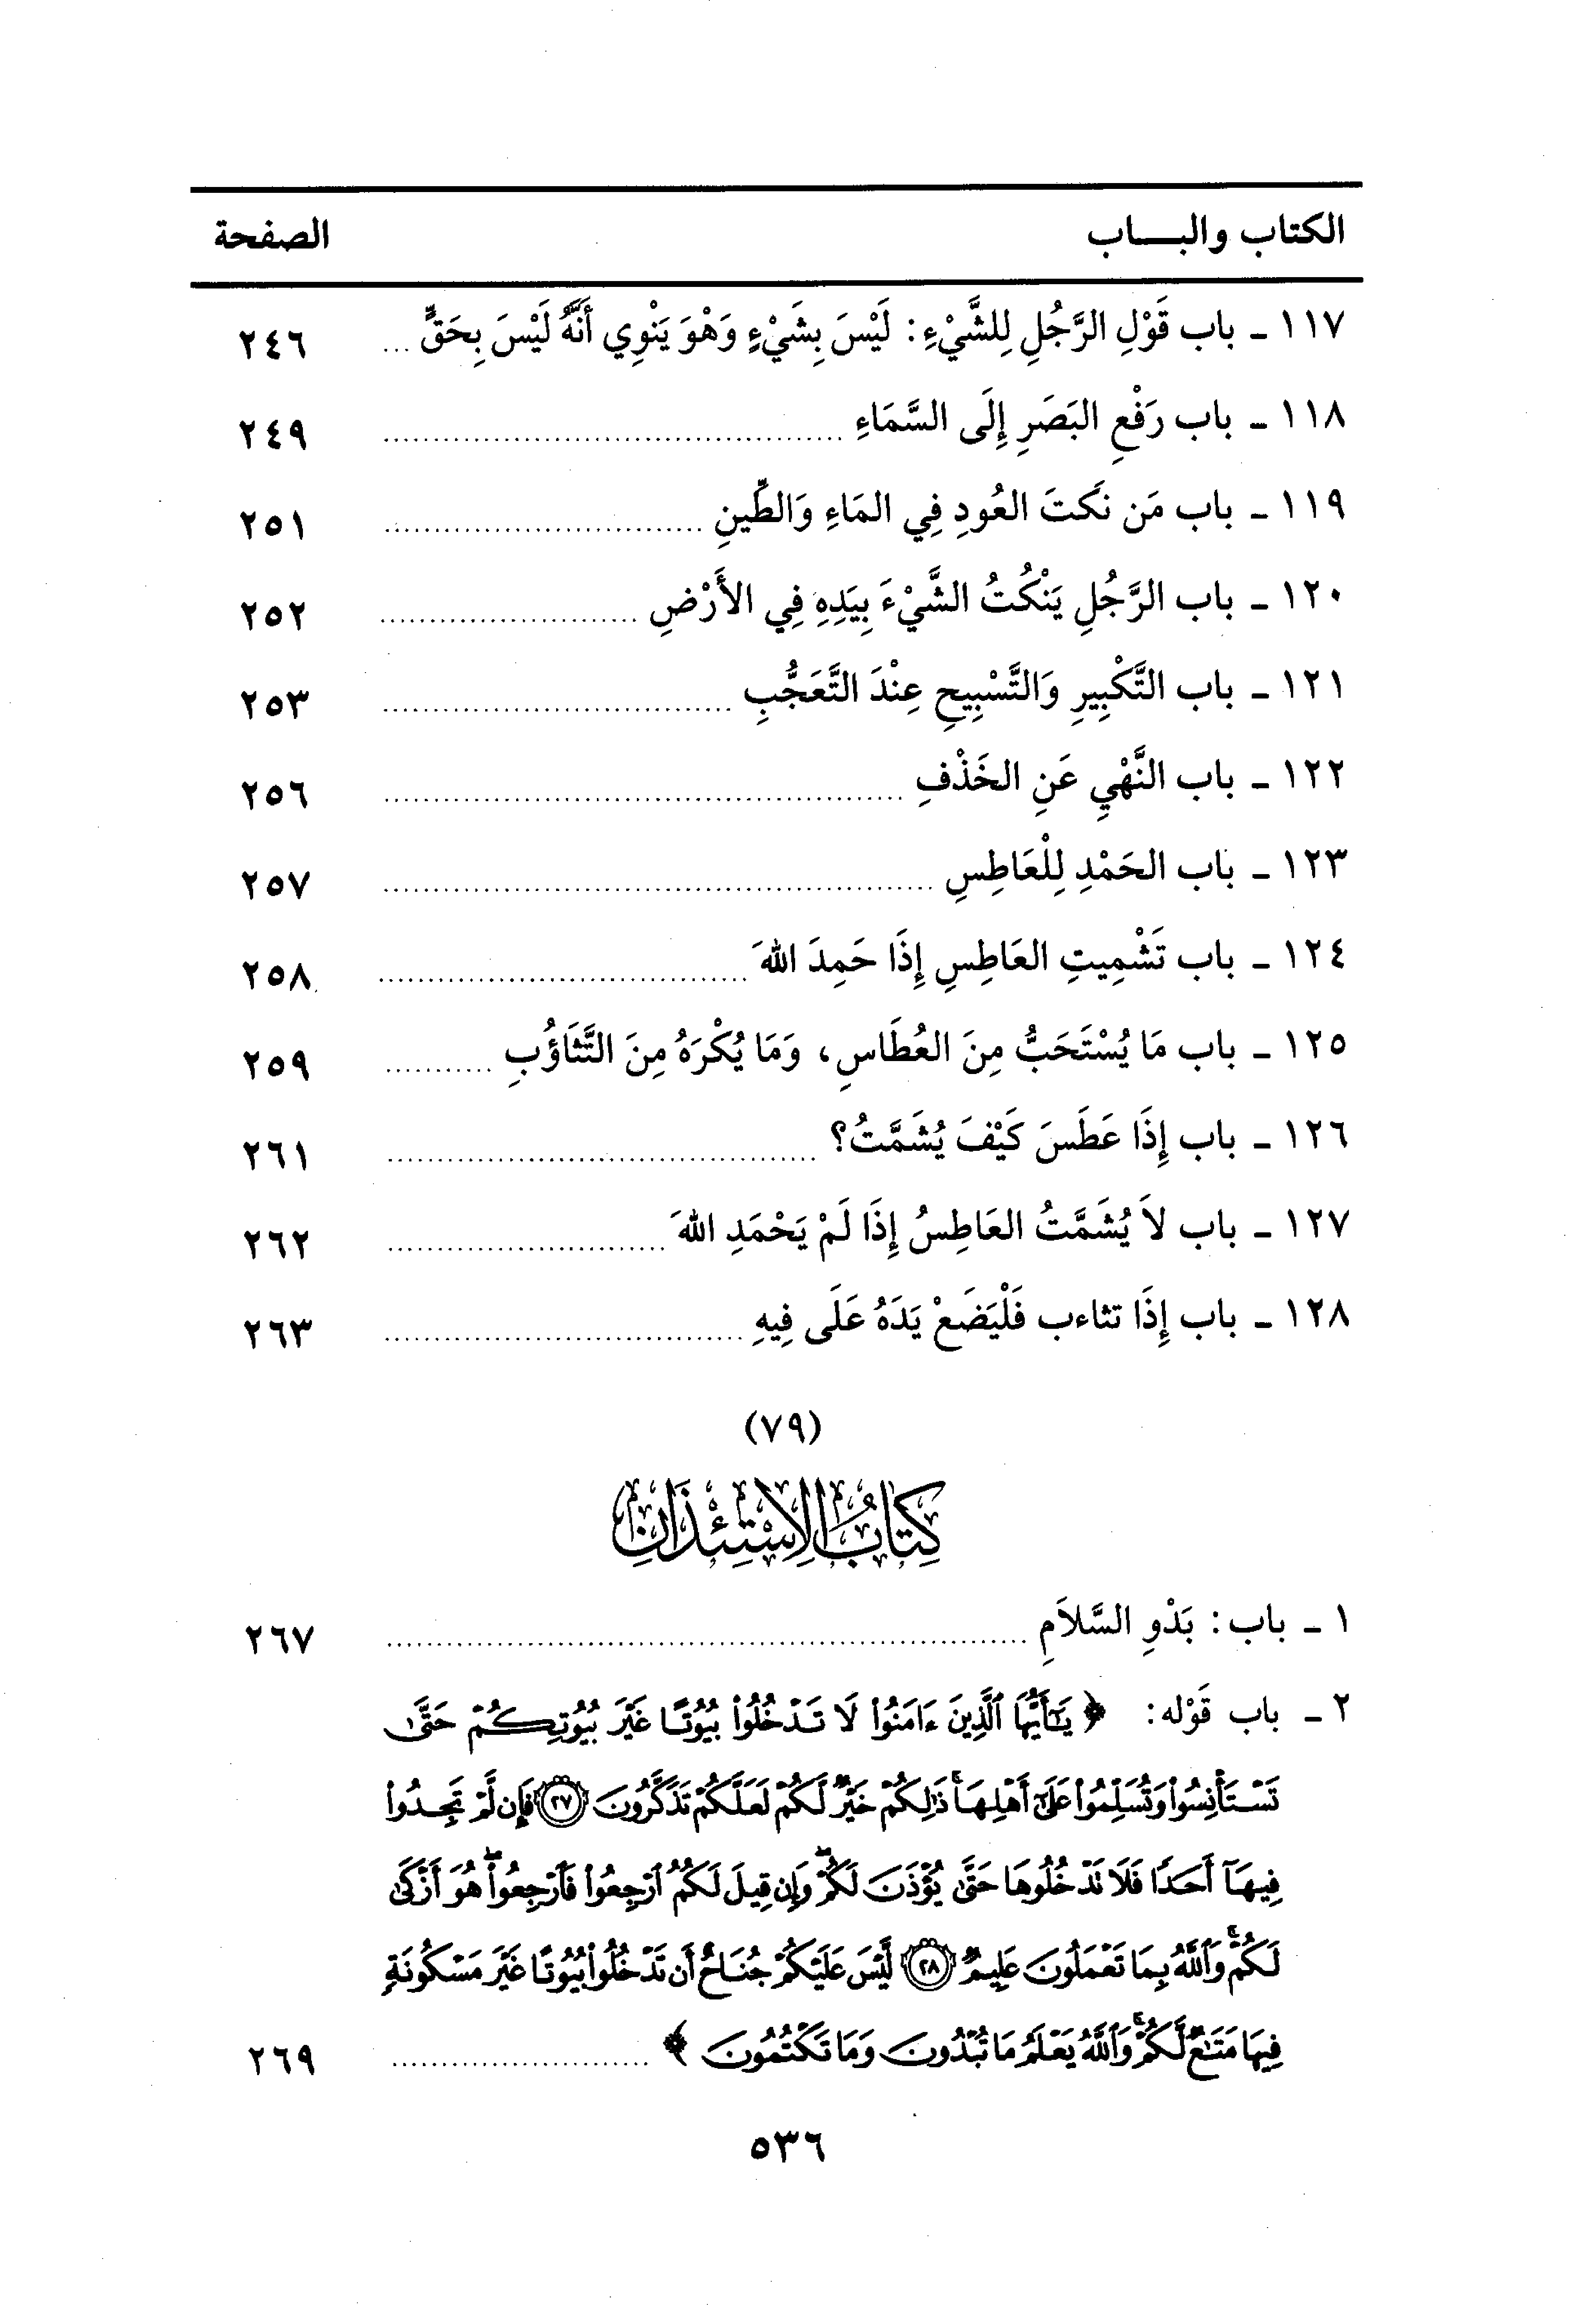 الكتاب والبـــاب الصفحة
١١٧ ـ باب قَوْلِ الرَّجُلِ لِلشَّيْءِ: لَيْسَ بِشَيْءٍ وَهْوَ يَنْوِي أَنَّهُ لَيْسَ بِحَقٍّ ... ٢٤٦
١١٨ ـ باب رَفْعِ البَصَرِ إِلَى السَّمَاءِ ................ ٢٤٩
١١٩ ـ باب مَن نَكَتَ العُودِ فِي المَاءِ وَالطِّينِ ................ ٢٥١
١٢٠ ـ باب الرَّجُلِ يَنْكُتُ الشَّيْءَ بِيَدِهِ فِي الأَرْضِ ................ ٢٥٢
١٢١ ـ باب التَّكْبِيرِ وَالتَّسْبِيحِ عِنْدَ التَّعَجُّبِ ................ ٢٥٣
١٢٢ ـ باب النَّهْيِ عَنِ الخَذْفِ ................ ٢٥٦
١٢٣ ـ باب الحَمْدِ لِلْعَاطِسِ ................ ٢٥٧
١٢٤ ـ باب تَشْمِيتِ العَاطِسِ إِذَا حَمِدَ اللهَ ................ ٢٥٨
١٢٥ ـ باب مَا يُسْتَحَبُّ مِنَ العُطَاسِ، وَمَا يُكْرَهُ مِنَ التَّثَاؤُبِ ........... ٢٥٩
١٢٦ ـ باب إِذَا عَطَسَ كَيْفَ يُشَمَّتُ؟ ................ ٢٦١
١٢٧ ـ باب لاَ يُشَمَّتُ العَاطِسُ إِذَا لَمْ يَحْمَدِ اللهَ ................ ٢٦٢
١٢٨ ـ باب إِذَا تثاءب فَلْيَضَعْ يَدَهُ عَلَى فِيهِ ................ ٢٦٣
(٧٩)
كِتَابُ الِاسْتِئْذَانِ
١ ـ باب: بَدْوِ السَّلاَمِ ................ ٢٦٧
٢ ـ باب قَوْله: ﴿يَٰٓأَيُّهَا ٱلَّذِينَ ءَامَنُوا۟ لَا تَدْخُلُوا۟ بُيُوتًا غَيْرَ بُيُوتِكُمْ حَتَّىٰ
تَسْتَأْنِسُوا۟ وَتُسَلِّمُوا۟ عَلَىٰٓ أَهْلِهَا ۚ ذَٰلِكُمْ خَيْرٌ لَّكُمْ لَعَلَّكُمْ تَذَكَّرُونَ ٢٧ فَإِن لَّمْ تَجِدُوا۟
فِيهَآ أَحَدًا فَلَا تَدْخُلُوهَا حَتَّىٰ يُؤْذَنَ لَكُمْ ۖ وَإِن قِيلَ لَكُمُ ٱرْجِعُوا۟ فَٱرْجِعُوا۟ ۖ هُوَ أَزْكَىٰ
لَكُمْ ۚ وَٱللَّهُ بِمَا تَعْمَلُونَ عَلِيمٌ ٢٨ لَّيْسَ عَلَيْكُمْ جُنَاحٌ أَن تَدْخُلُوا۟ بُيُوتًا غَيْرَ مَسْكُونَةٍ
فِيهَا مَتَٰعٌ لَّكُمْ ۚ وَٱللَّهُ يَعْلَمُ مَا تُبْدُونَ وَمَا تَكْتُمُونَ﴾ ................ ٢٦٩
٥٣٦